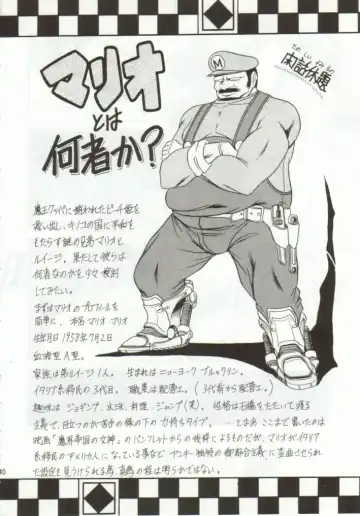 マリオ
とは
何者か?
閑話休題
M
魔王クッパに捕われたピーチ姫を
救い出し、キノコの国に平和を
もたらす謎の兄弟マリオと
ルイージ。果たして彼らは
何者なのかを少々検討
してみたい。
まずオマリオのプロフィールを
簡単に、本名 マリオ・マリオ
生年月日 1958年7月2日
血液型 A型。
家族は弟ルイージ1人。生まれはニューヨーク ブルックリン。
イタリア系移民の3代目。職業は配管工。(3代前から配管工。)
趣味は ジョギング、水泳、料理、ジャンプ(笑)。性格は石橋をたたいて渡る
主義で、目立つのが苦手な縁の下の力持ちタイプ。…とまあここまで書いたのは
映画「魔界帝国の女神」のパンフレットからの抜粋によるものだが、マリオがイタリア
系移民のアメリカ人になっている事など ヤンキー独特の御都合主義に歪曲させられ
た設定も見うけられる為、真偽の程は明らかではない。